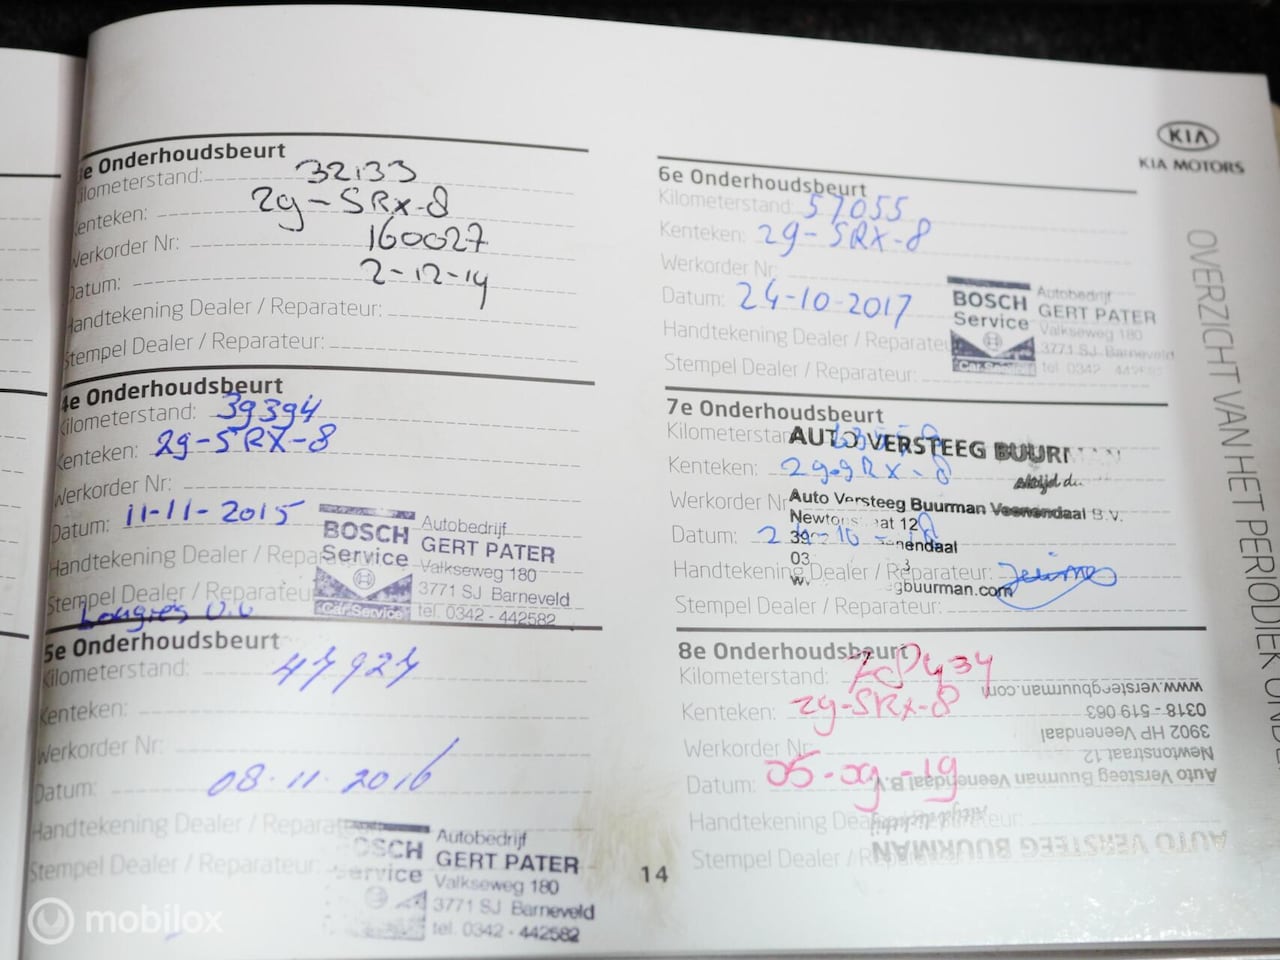 3e Onderhoudsbeurt
Kilometerstand: 32133
Kenteken: 29-SRX-8
Werkorder Nr: 160027
Datum: 2-12-14
Handtekening Dealer / Reparateur:
Stempel Dealer / Reparateur:
4e Onderhoudsbeurt
Kilometerstand: 39394
Kenteken: 29-SRX-8
Werkorder Nr:
Datum: 11-11-2015
Handtekening Dealer / Reparateur
Stempel Dealer / Reparateur
BOSCH
Service
Car Service
Autobedrijf
GERT PATER
Valkseweg 180
3771 SJ Barneveld
tel. 0342 - 442582
5e Onderhoudsbeurt
Kilometerstand: 47927
Kenteken:
Werkorder Nr:
Datum: 08-11-2016
Handtekening Dealer / Repara
Stempel Dealer / Reparateur:
OSCH
ervice
Autobedrijf
GERT PATER
Valkseweg 180
3771 SJ Barneveld
tel. 0342 - 442582
KIA
KIA MOTORS
6e Onderhoudsbeurt
Kilometerstand: 57055
Kenteken: 29-SRX-8
Werkorder Nr:
Datum: 24-10-2017
Handtekening Dealer / Reparateu
Stempel Dealer / Reparateur:
BOSCH
Service
Car Service
Autobedrijf
GERT PATER
Valkseweg 180
3771 SJ Barneveld
tel. 0342
7e Onderhoudsbeurt
Kilometerstan
Kenteken:
Werkorder Nr
Datum:
Handtekening Dealer / Reparateur:
Stempel Dealer / Reparateur:
AUTO VERSTEEG BUURM
Auto Versteeg Buurman Veenendaal B.V.
8e Onderhoudsbeurt
Kilometerstand:
Kenteken: 29-SRX-8
Werkorder Nr:
Datum: 05-09-19
Handtekening Dealer / Reparateur:
Stempel Dealer / R
AUTO VERSTEEG BUURMAN
Auto Versteeg Buurman Veenendaal B.V.
Newtonstraat 12
3902 HP Veenendaal
0318 - 519 063
www.versteegbuurman.com
14
OVERZICHT VAN HET PERIODIEK ONDE
mobilox